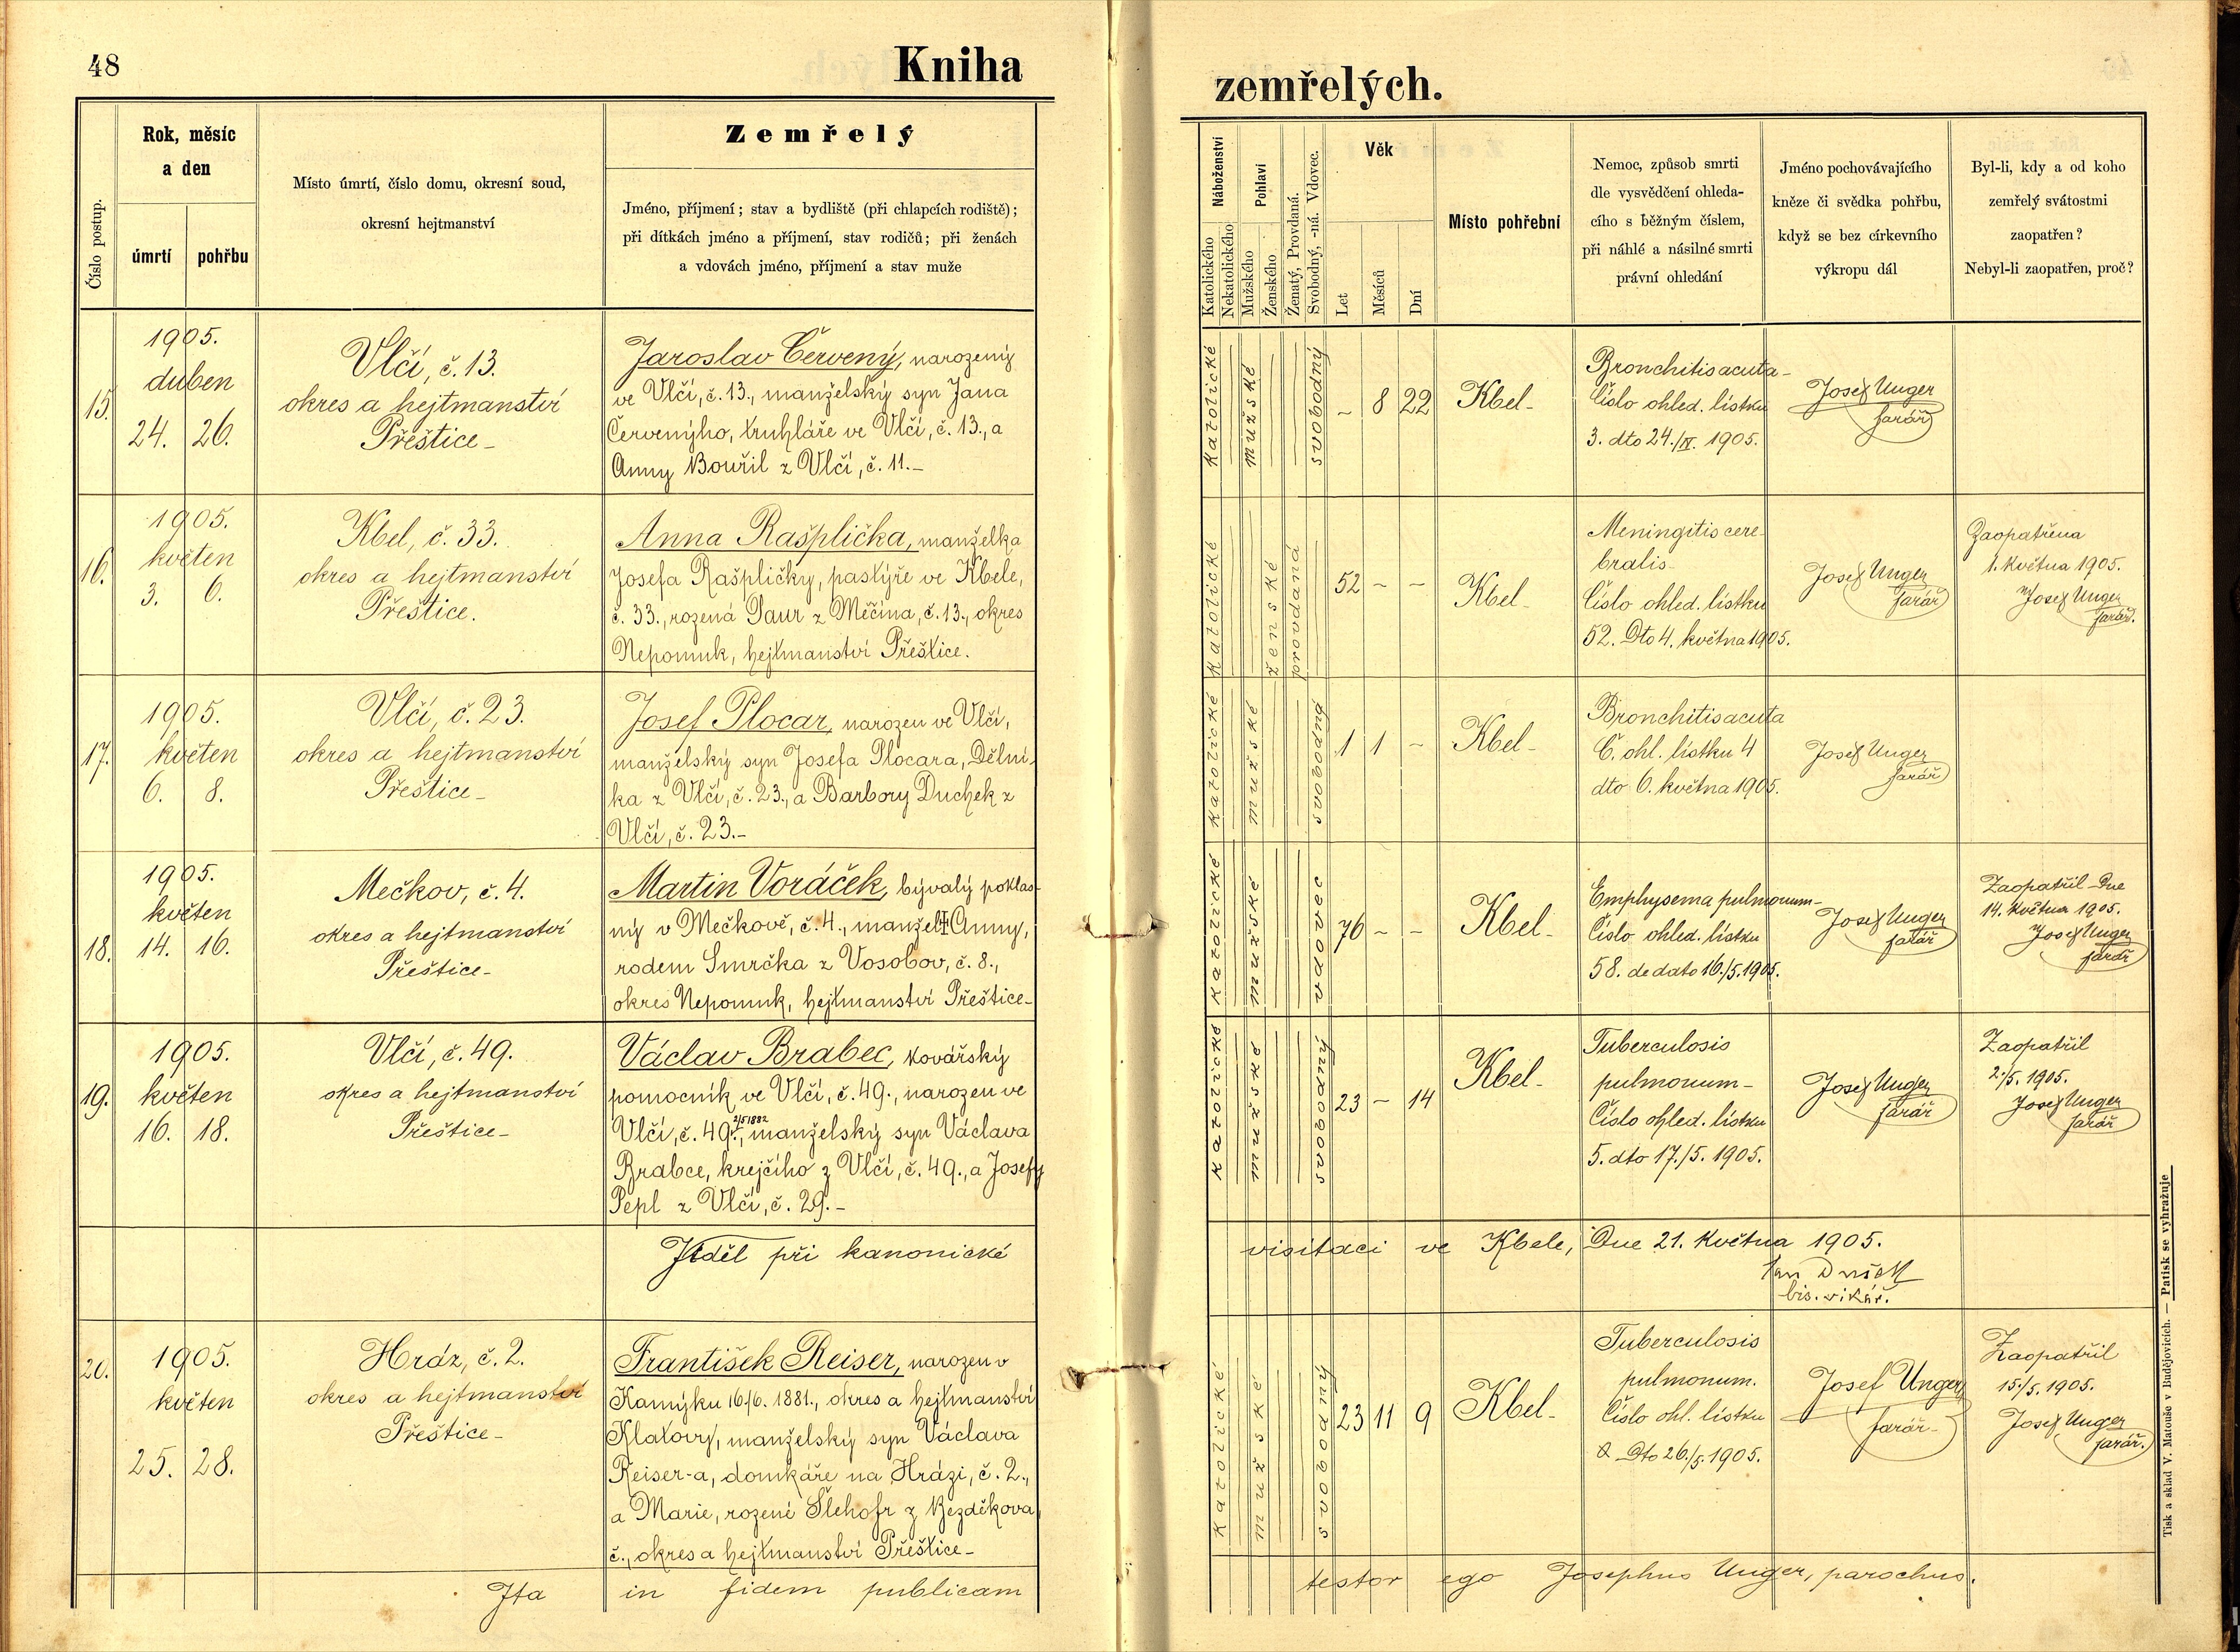 48
Kniha
zemřelých.
Číslo postup.
Rok, měsíc
a den
úmrtí
pohřbu
Místo úmrtí, číslo domu, okresní soud,
okresní hejtmanství
Zemřelý
Jméno, příjmení; stav a bydliště (při chlapcích rodiště);
při dítkách jméno a příjmení, stav rodičů; při ženách
a vdovách jméno, příjmení a stav muže
Náboženství
Katolického
Nekatolického
Pohlaví
Mužského
Ženského
Ženatý, Provdaná.
Svobodný, -ná. Vdovec.
Věk
Let
Měsíců
Dní
Místo pohřební
Nemoc, způsob smrti
dle vysvědčení ohleda-
cího s běžným číslem,
při náhlé a násilné smrti
právní ohledání
Jméno pochovávajícího
kněze či svědka pohřbu,
když se bez církevního
výkropu dál
Byl-li, kdy a od koho
zemřelý svátostmi
zaopatřen?
Nebyl-li zaopatřen, proč?
15.
1905.
duben
24. 26.
Vlčí, č. 13.
okres a hejtmanství
Přeštice-
Jaroslav Červený, narozený
ve Vlčí, č. 13., manželský syn Jana
Červenýho, truhláře ve Vlčí, č. 13., a
Anny Bouřil z Vlčí, č. 11.-
Katolické
mužské
svobodný
- 8 22
Kbel-
Bronchitis acuta-
Číslo ohled. lístku
3. dto 24./IV. 1905.
Josef Unger
farář
16.
1905.
květen
3. 6.
Kbel, č. 33.
okres a hejtmanství
Přeštice.
Anna Rašplička, manželka
Josefa Rašpličky, pastýře ve Kbele,
č. 33., rozená Paur z Měčína, č. 13., okres
Nepomuk, hejtmanství Přeštice.
Katolické
ženské
provdaná
52 - -
Kbel-
Meningitis cere-
bralis-
Číslo ohled. lístku
52. Dto 4. května 1905.
Josef Unger
farář
Zaopatřena
1. května 1905.
Josef Unger
farář.
17.
1905.
květen
6. 8.
Vlčí, č. 23.
okres a hejtmanství
Přeštice-
Josef Plocar, narozen ve Vlčí,
manželský syn Josefa Plocara, Dělní-
ka z Vlčí, č. 23., a Barbory Duchek z
Vlčí, č. 23.-
Katolické
mužské
svobodný
1 1 -
Kbel-
Bronchitis acuta
Č. ohl. lístku 4
dto 6. května 1905.
Josef Unger
farář
18.
1905.
květen
14. 16.
Mečkov, č. 4.
okres a hejtmanství
Přeštice-
Martin Voráček, bývalý poklas-
ný v Mečkově, č. 4., manžel † Anny,
rodem Smrčka z Vosobov, č. 8.,
okres Nepomuk, hejtmanství Přeštice-
Katolické
mužské
vdovec
76 - -
Kbel-
Emphysema pulmonum-
Číslo ohled. lístku
58. de dato 16./5. 1905.
Josef Unger
farář
Zaopatřil Dne
14. května 1905.
Josef Unger
farář
19.
1905.
květen
16. 18.
Vlčí, č. 49.
okres a hejtmanství
Přeštice-
Václav Brabec, kovářský
pomocník ve Vlčí, č. 49., narozen ve
2/5 1882
Vlčí, č. 49., manželský syn Václava
Brabce, krejčího z Vlčí, č. 49., a Josefy
Pepl z Vlčí, č. 29.-
Katolické
mužské
svobodný
23 - 14
Kbel-
Tuberculosis
pulmonum-
Číslo ohled. lístku
5. dto 17./5. 1905.
Josef Unger
farář
Zaopatřil
2./5. 1905.
Josef Unger
farář
Viděl při kanonické
visitaci ve Kbele, Dne 21. května 1905.
bis. vikář.
20.
1905.
květen
25. 28.
Hráz, č. 2.
okres a hejtmanství
Přeštice-
František Reiser, narozen v
Kamýku 16./6. 1881., okres a hejtmanství
Klatovy, manželský syn Václava
Reiser-a, domkáře na Hrázi, č. 2.,
a Marie, rozené Šlehofr z Bezděkova,
č., okres a hejtmanství Přeštice-
Katolické
mužské
svobodný
23 11 9
Kbel-
Tuberculosis
pulmonum.
Číslo ohl. lístku
Dto 26./5. 1905.
Josef Unger
farář-
Zaopatřil
15./5. 1905.
Josef Unger
farář.
Ita in fidem publicam
testor ego Josephus Unger, parochus.
Tisk a sklad V. Matouše v Budějovicích. — Patisk se vyhražuje